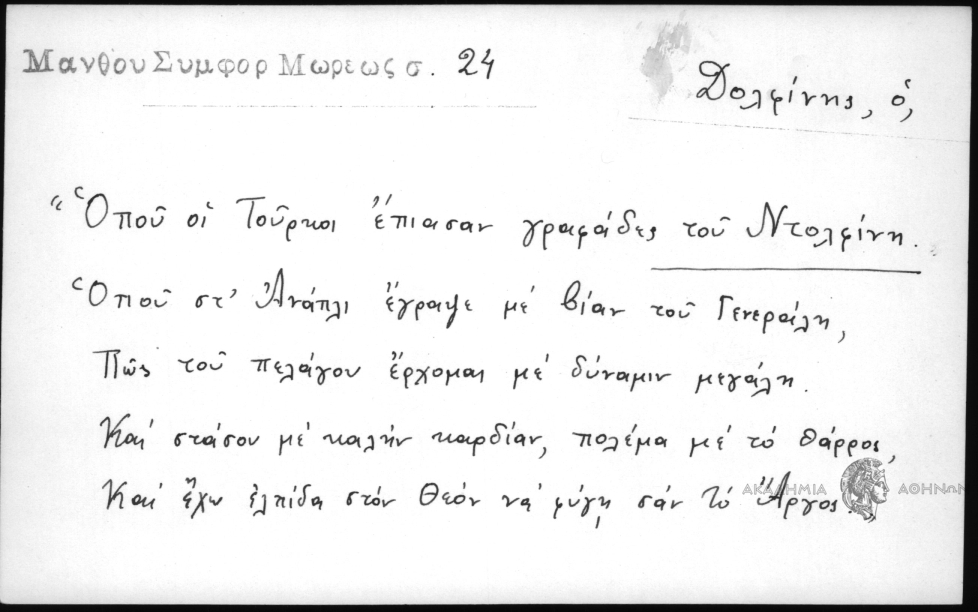 Μανθου Συμφορ Μωρεως σ. 24
Δολφίνης, ὁ,
"Ὁποῦ οἱ Τοῦρκοι ἔπιασαν γραφάδες τοῦ Ντολφίνη.
Ὁποῦ στ' Ἀνάπλι ἔγραψε μέ βίαν τοῦ Γενεράλη,
Πῶς τοῦ πελάγου ἔρχομαι μέ δύναμιν μεγάλη.
Καί στάσου μέ καλήν καρδίαν, πολέμα μέ τό θάρρος,
Καί ἔχω ἐλπίδα στόν Θεόν νά φύγῃ σάν τό Ἄργος.
ΑΚΑΔΗΜΙΑ ΑΘΗΝΩΝ